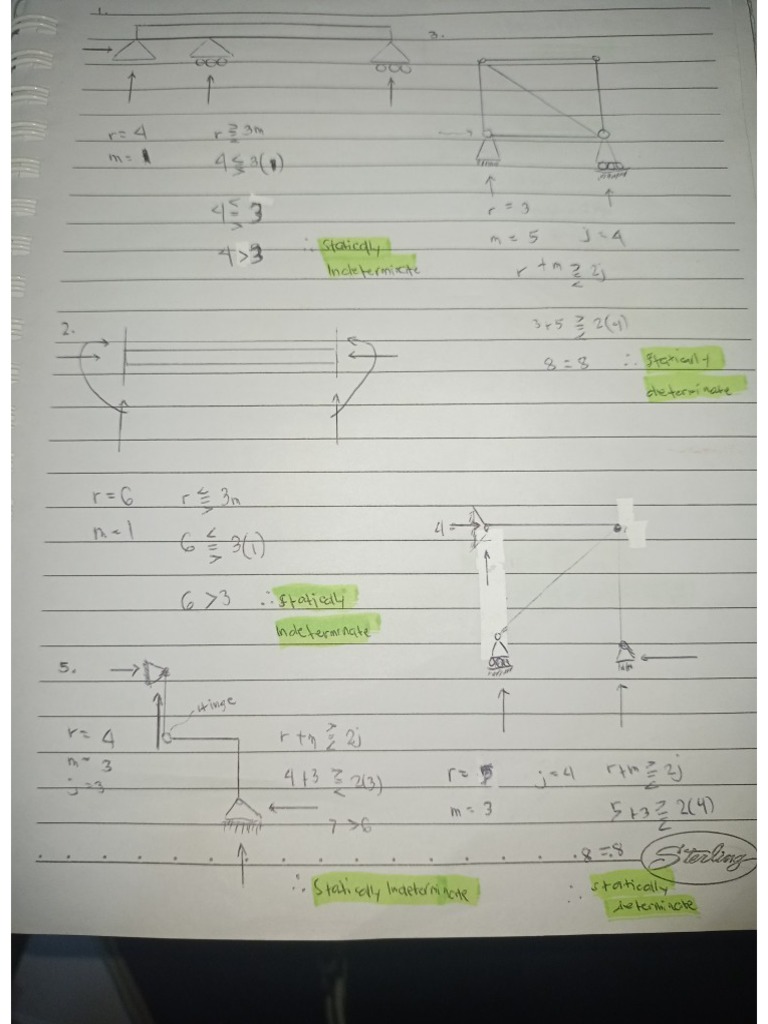 1.
r = 4 r ⋛ 3m
m = 1 4 ⋚ 3(1)
4 ⋚ 3
4 > 3 ∴ Statically
Indeterminate
2.
r = 6 r ⋚ 3m
m = 1 6 ⋚ 3(1)
6 > 3 ∴ Statically
Indeterminate
3.
r = 3
m = 5 j = 4
r + m ⋛ 2j
3+5 ⋛ 2(4)
8 = 8 ∴ Statically
determinate
4
r = j = 4 r+m ⋛ 2j
m = 3 5+3 ⋛ 2(4)
8 = 8
∴ Statically
determinate
5.
Hinge
r = 4 r + m ⋛ 2j
m = 3 4+3 ⋛ 2(3)
j = 3 7 > 6
∴ Statically Indeterminate
Sterling